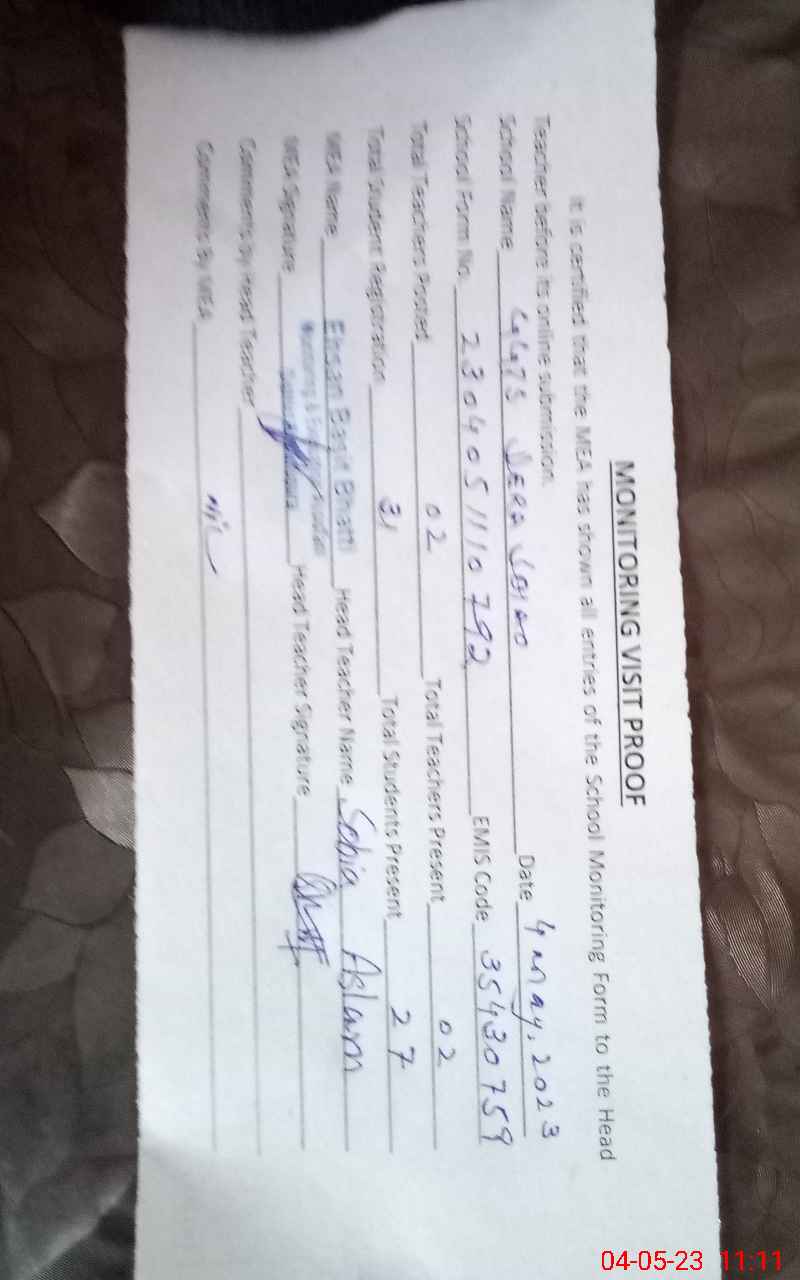 MONITORING VISIT PROOF
It is certified that the MEA has shown all entries of the School Monitoring Form to the Head
Teacher before its online submission.
School Name Date 4 May, 2023
School Form No. 2304051110792 EMIS Code 35430759
Total Teachers Posted 02 Total Teachers Present 02
Total Student Registration 31 Total Students Present 27
MEA Name Ehsan Basit Bhatti Head Teacher Name Sobia Aslam
MEA Signature Head Teacher Signature
Comments By Head Teacher
Comments By MEA Nil
04-05-23 11:11